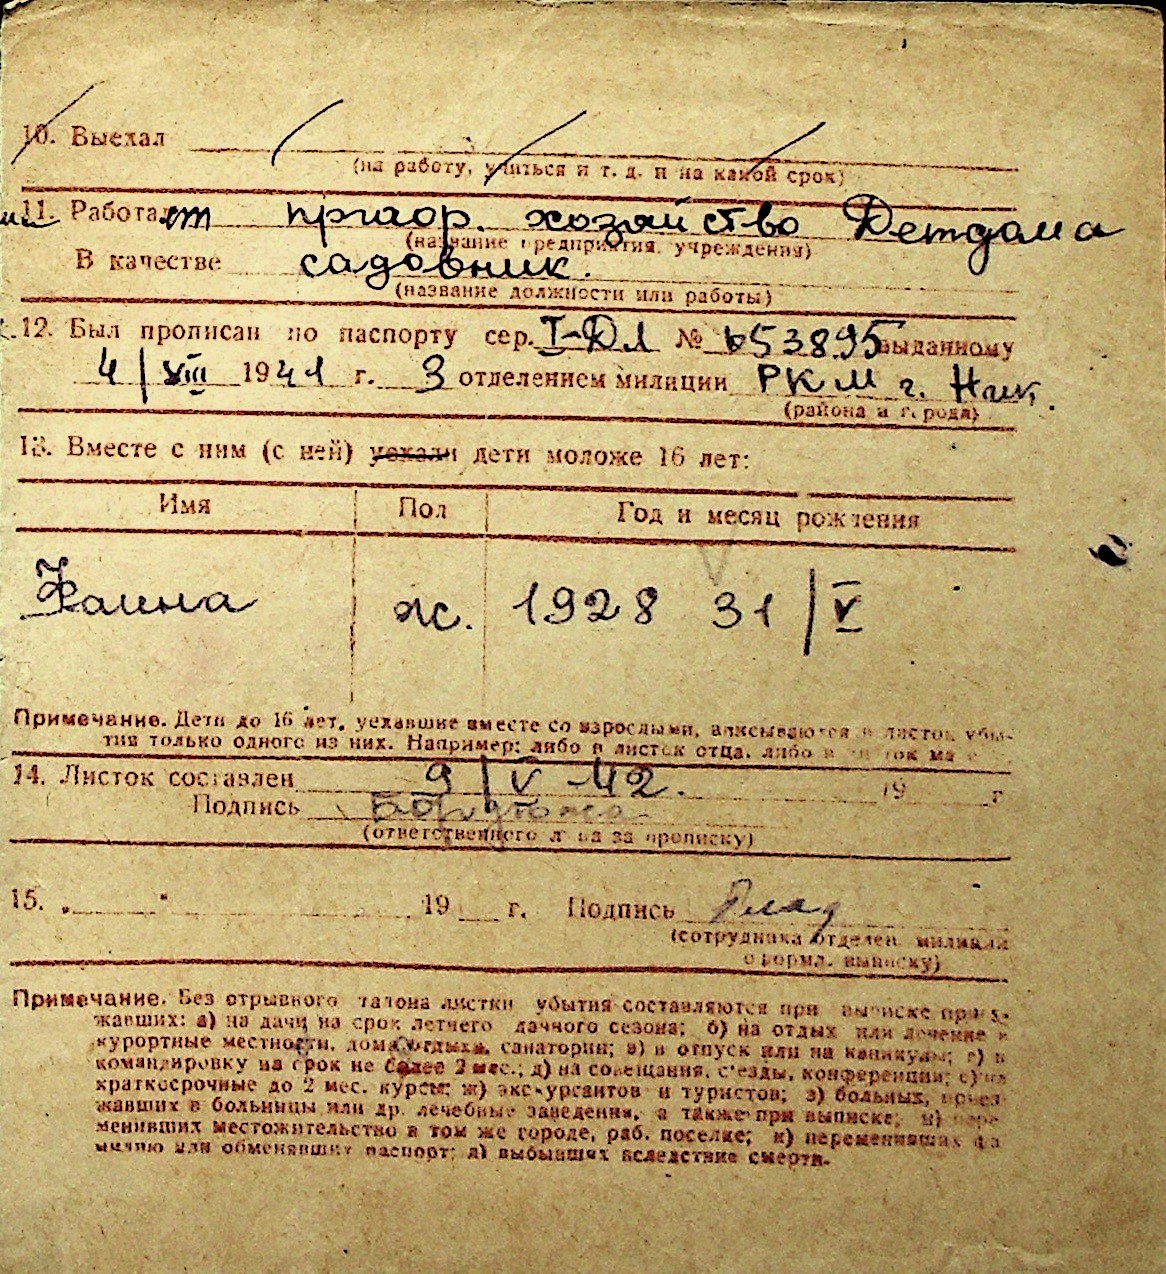 10. Выехал
(на работу, учиться и т. д. и на какой срок)
11. Работает хозяйство Детдома
(название предприятия, учреждения)
В качестве садовник.
(название должности или работы)
12. Был прописан по паспорту сер. I-ДЛ № 653895 выданному
4/VIII 1941 г. 3 отделением милиции РКМ г.
(района и города)
13. Вместе с ним (с ней) уехали дети моложе 16 лет:
Имя Пол Год и месяц рождения
Фаина ж. 1928 31/V
Примечание. Дети до 16 лет, уехавшие вместе со взрослыми, вписываются в листок убы-
тия только одного из них. Например: либо в листок отца, либо в листок
14. Листок составлен 9/V 42. 19 г
Подпись
(ответственного лица за прописку)
15. „ “ 19 г. Подпись
(сотрудника отделен. милиции
оформл. выписку)
Примечание. Без отрывного талона листки убытия составляются при выписке приез-
жавших: а) на дачи на срок летнего дачного сезона; б) на отдых или лечение в
курортные местности, дома отдыха, санатории; в) в отпуск или на каникулы; г) в
командировку на срок не более 2 мес.; д) на совещания, съезды, конференции; е) на
краткосрочные до 2 мес. курсы; ж) экскурсантов и туристов; з) больных, приез-
жавших в больницы или др. лечебные заведения, а также при выписке; и) пере-
менивших местожительство в том же городе, раб. поселке; к) переменивших фа-
милию или обменявших паспорт; л) выбывших вследствие смерти.